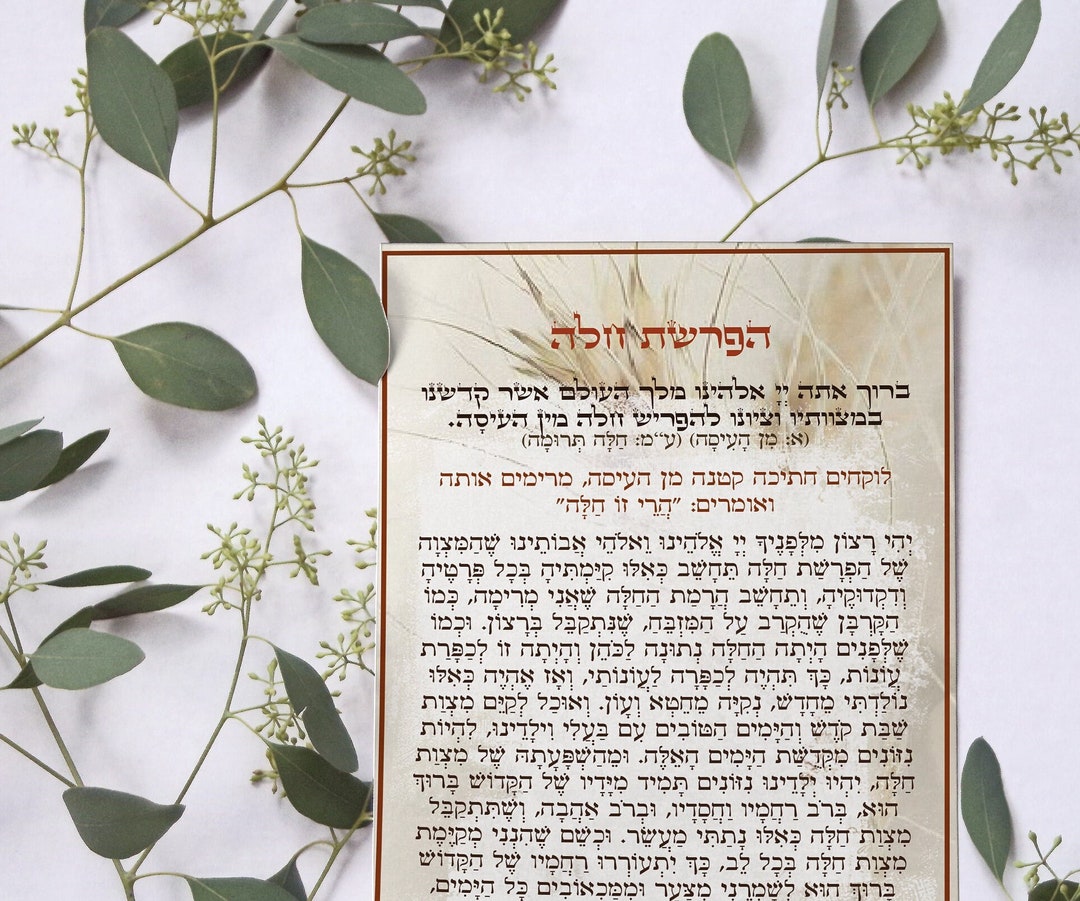 הפרשת חלה
ברוך אתה יְיָ אלהינו מלך העולם אשר קדשנו
במצוותיו וציונו להפריש חלה מין העיסָה.
(א: מִן הָעִיסָה) (ע״מ: חַלָּה תְּרוּמָה)
לוקחים חתיכה קטנה מן העיסה, מרימים אותה
ואומרים: "הֲרֵי זוֹ חַלָּה"
יְהִי רָצוֹן מִלְּפָנֶיךָ יְיָ אֱלֹהֵינוּ וֵאלֹהֵי אֲבוֹתֵינוּ שֶׁהַמִּצְוָה
שֶׁל הַפְרָשַׁת חַלָּה תֵּחָשֵׁב כְּאִלּוּ קִיַּמְתִּיהָ בְּכָל פְּרָטֶיהָ
וְדִקְדּוּקֶיהָ, וְתֵחָשֵׁב הֲרָמַת הַחַלָּה שֶׁאֲנִי מְרִימָה, כְּמוֹ
הַקָּרְבָּן שֶׁהֻקְרַב עַל הַמִּזְבֵּחַ, שֶׁנִּתְקַבֵּל בְּרָצוֹן. וּכְמוֹ
שֶׁלְּפָנִים הָיְתָה הַחַלָּה נְתוּנָה לַכֹּהֵן וְהָיְתָה זוֹ לְכַפָּרַת
עֲוֹנוֹת, כָּךְ תִּהְיֶה לְכַפָּרָה לַעֲוֹנוֹתַי, וְאָז אֶהְיֶה כְּאִלּוּ
נוֹלַדְתִּי מֵחָדָשׁ, נְקִיָּה מֵחֵטְא וְעָוֹן. וְאוּכַל לְקַיֵּם מִצְוַת
שַׁבַּת קֹדֶשׁ וְהַיָּמִים הַטּוֹבִים עִם בַּעְלִי וִילָדֵינוּ, לִהְיוֹת
נִזּוֹנִים מִקְּדֻשַּׁת הַיָּמִים הָאֵלֶּה. וּמֵהַשְׁפָּעָתָהּ שֶׁל מִצְוַת
חַלָּה, יִהְיוּ יְלָדֵינוּ נִזּוֹנִים תָּמִיד מִיָּדָיו שֶׁל הַקָּדוֹשׁ בָּרוּךְ
הוּא, בְּרֹב רַחֲמָיו וַחֲסָדָיו, וּבְרֹב אַהֲבָה, וְשֶׁתִּתְקַבֵּל
מִצְוַת חַלָּה כְּאִלּוּ נָתַתִּי מַעֲשֵׂר. וּכְשֵׁם שֶׁהִנְנִי מְקַיֶּמֶת
מִצְוַת חַלָּה בְּכָל לֵב, כָּךְ יִתְעוֹרְרוּ רַחֲמָיו שֶׁל הַקָּדוֹשׁ
בָּרוּךְ הוּא לְשָׁמְרֵנִי מִצַּעַר וּמִמַּכְאוֹבִים כָּל הַיָּמִים,